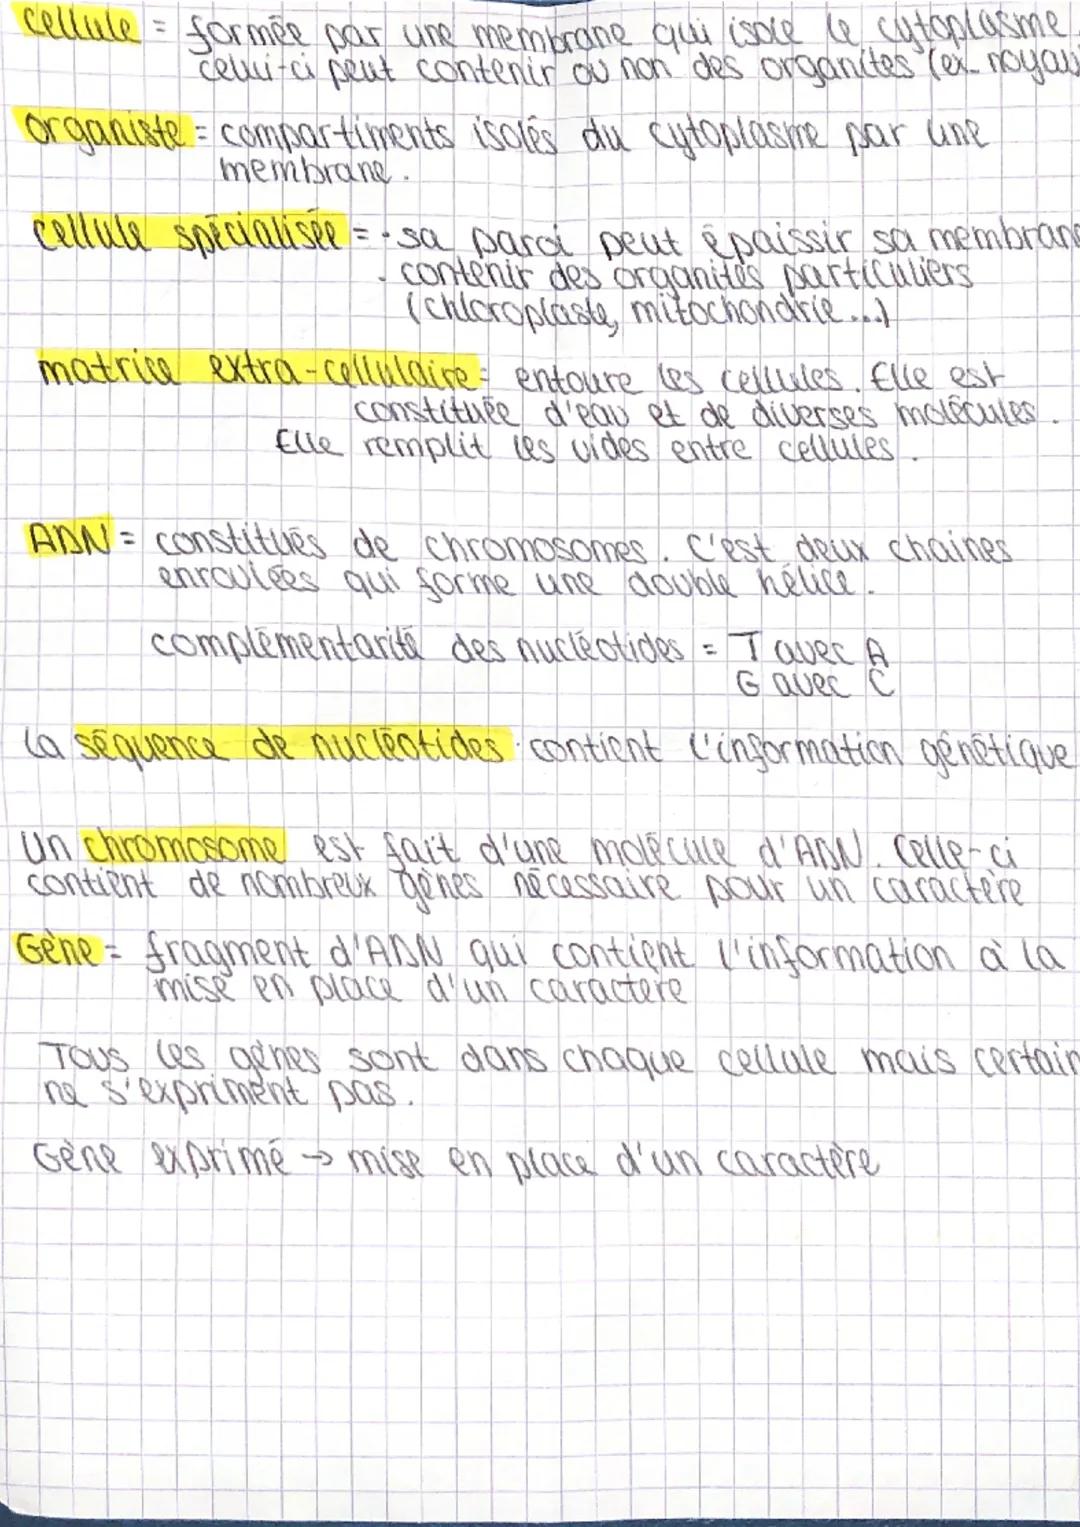 cellule = formée par une membrane qui isole le cytoplasme.
celui-ci peut contenir ou non des organites (ex_ noyau)
organiste = compartiments isolés du cytoplasme par une
membrane.
cellule spécialisée = · sa paroi peut épaissir sa membrane
. contenir des organites particuliers
(chloroplaste, mitochondrie...)
matrice extra-cellulaire = entoure les cellules. Elle est
constituée d'eau et de diverses molécules.
Elle remplit les vides entre cellules.
ADN = constitués de chromosomes. C'est deux chaines
enroulées qui forme une double hélice.
complémentarité des nucléotides = T avec A
G avec C
La séquence de nucléotides contient l'information génétique
Un chromosome est fait d'une molécule d'ADN. Celle-ci
contient de nombreux gènes nécessaire pour un caractère
Gène = fragment d'ADN qui contient l'information à la
mise en place d'un caractere
Tous les gènes sont dans chaque cellule mais certain
ne s'expriment pas.
Gène exprimé → mise en place d'un caractère